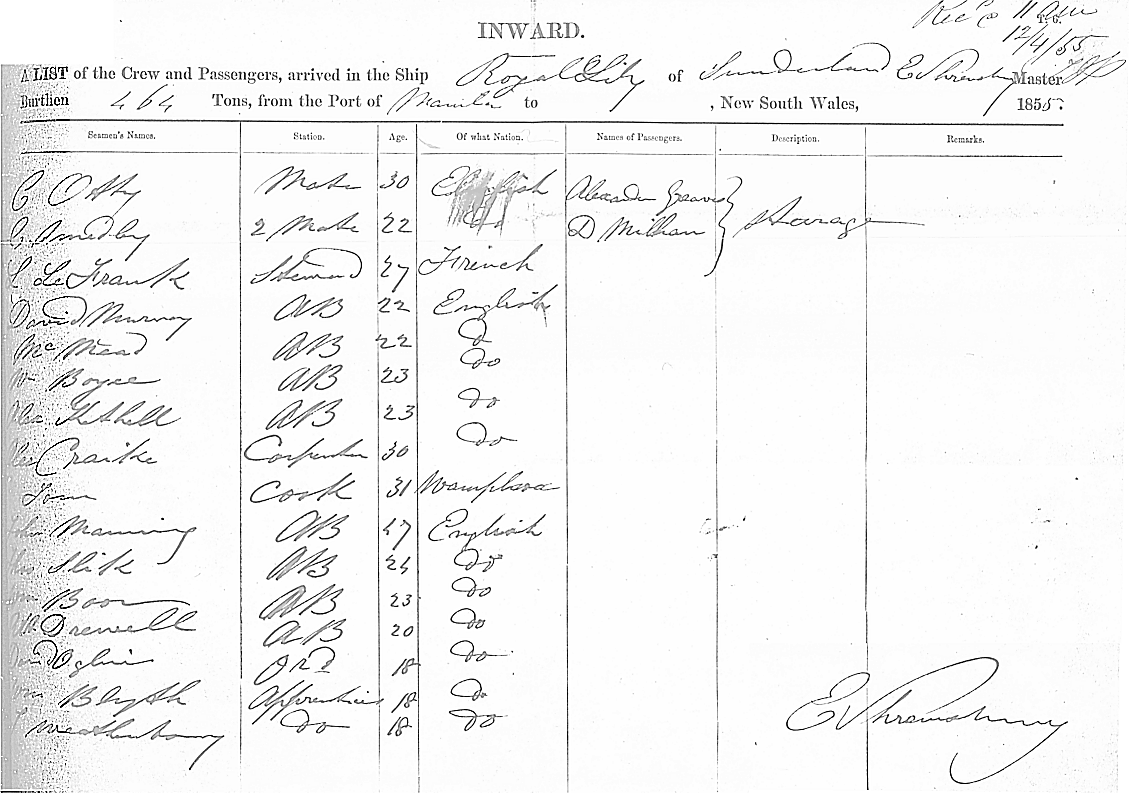 INWARD.
Rec'd 11 am
12/4/55
A LIST of the Crew and Passengers, arrived in the Ship Royal Lily of Sunderland E Shrewsbury Master
Burthen 464 Tons, from the Port of Manila to , New South Wales, 1855.
Seamen's Names. Station. Age. Of what Nation. Names of Passengers. Description. Remarks.
C Otty Mate 30 English Alexander Greaves
Smedley 2 Mate 22 Do D Millham Storage
Le Frank Steward 27 French
David Murray AB 22 English
Mc Mead AB 22 Do
Wm Boyce AB 23 Do
Kethell AB 23 Do
Craike Carpenter 30 Do
Tom Cook 31
Manning AB 27 English
Slik AB 24 Do
Boon AB 23 Do
Drewell AB 20 Do
David Ord 18 Do
Blyth Apprentice 18 Do
Weatherburny Do 18 Do
E Shrewsbury